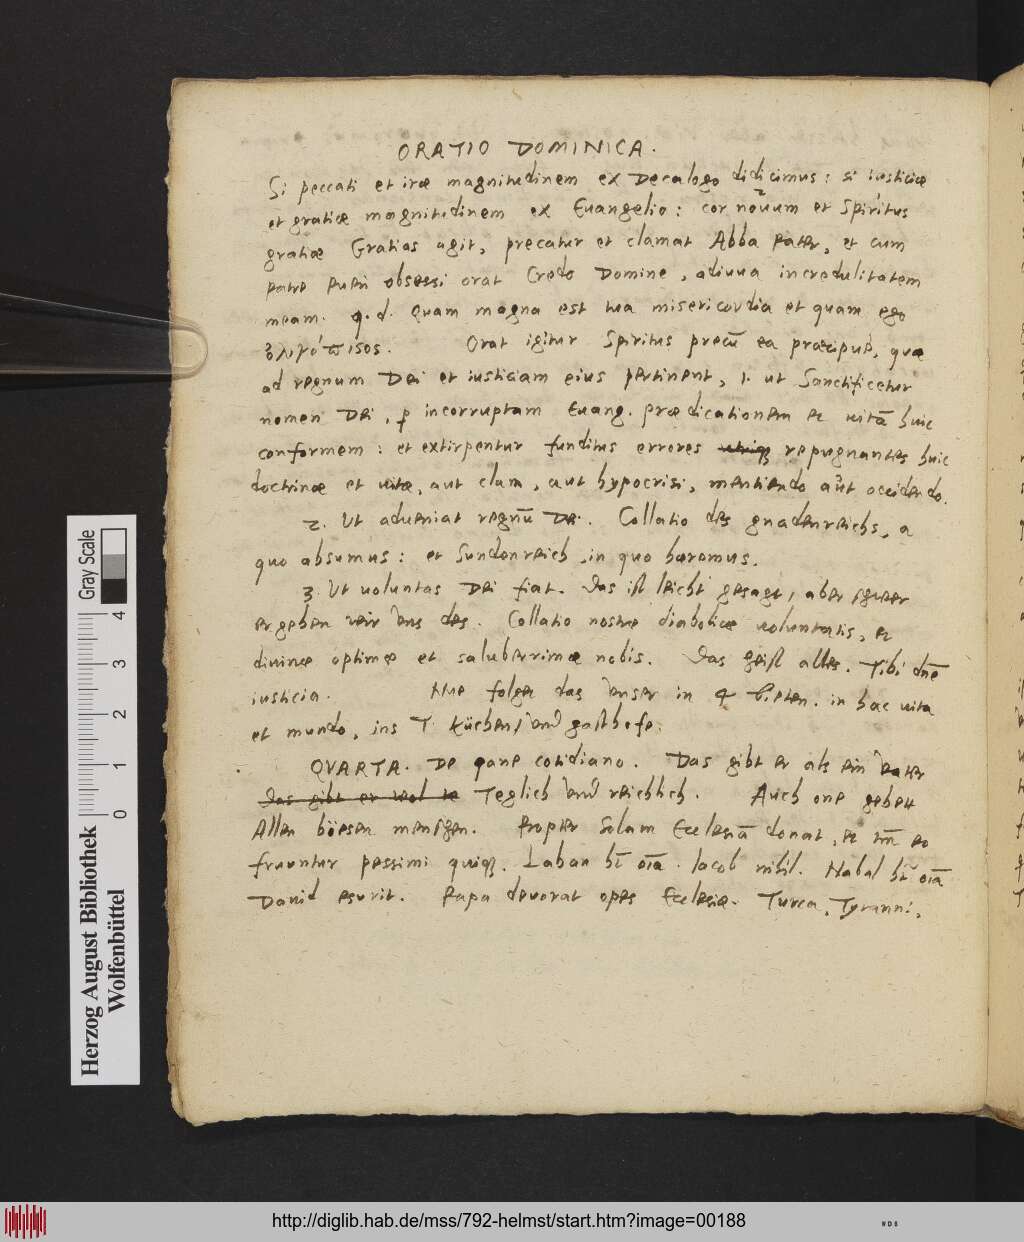 ORATIO DOMINICA.
Si peccati et iræ magnitudinem ex Decalogo didicimus: si iusticiæ
et gratiæ magnitudinem ex Euangelio: cor nouum et Spiritus
gratiæ Gratias agit, precatur et clamat Abba Pater, et cum
patre pueri obsessi orat Credo Domine, adiuua incredulitatem
meam. q.d. Quam magna est tua misericordia et quam ego
ὀλιγόπιστος. Orat igitur Spiritus precū ea præcipue, quæ
ad regnum Dei et iusticiam eius pertinent, 1. ut Sanctificetur
nomen Dei, p incorruptam Euang. prædicationem et uitā huic
conformem: et extirpentur funditus errores utriq repugnantes huic
doctrinæ et uitæ, aut clam, aut hypocrisi, mentiendo aut occidendo.
2. Ut adueniat regnū Dei. Collatio des gnadenreichs, a
quo absumus: et Sundenreich, in quo hæremus.
3. Ut uoluntas Dei fiat. Das ist leicht gesagt, aber schwer
ergeben wir vns des. Collatio nostræ diabolicæ uoluntatis, et
diuinæ optimæ et saluberrimæ nobis. Das heist alles. Tibi dne
iusticia. Nue folget das vnser in 4 bitten. in hac uita
et mundo, ins T. Küchen, vnd gasthofe.
QVARTA. De pane cotidiano. Das gibt er als ein vater
Das gibt er wol Teglich vnd reichlich. Auch one gebett
Allen böesen menschen. Propter Solam Ecclesiā donat, et tm eo
fruuntur pessimi quiq. Laban ht oīa. Iacob nihil. Nabal ht oīa
Dauid esurit. Papa deuorat opes Ecclesiæ. Turca, Tyranni,
Herzog August Bibliothek
Wolfenbüttel
Gray Scale
0 1 2 3 4
http://diglib.hab.de/mss/792-helmst/start.htm?image=00188
WDB